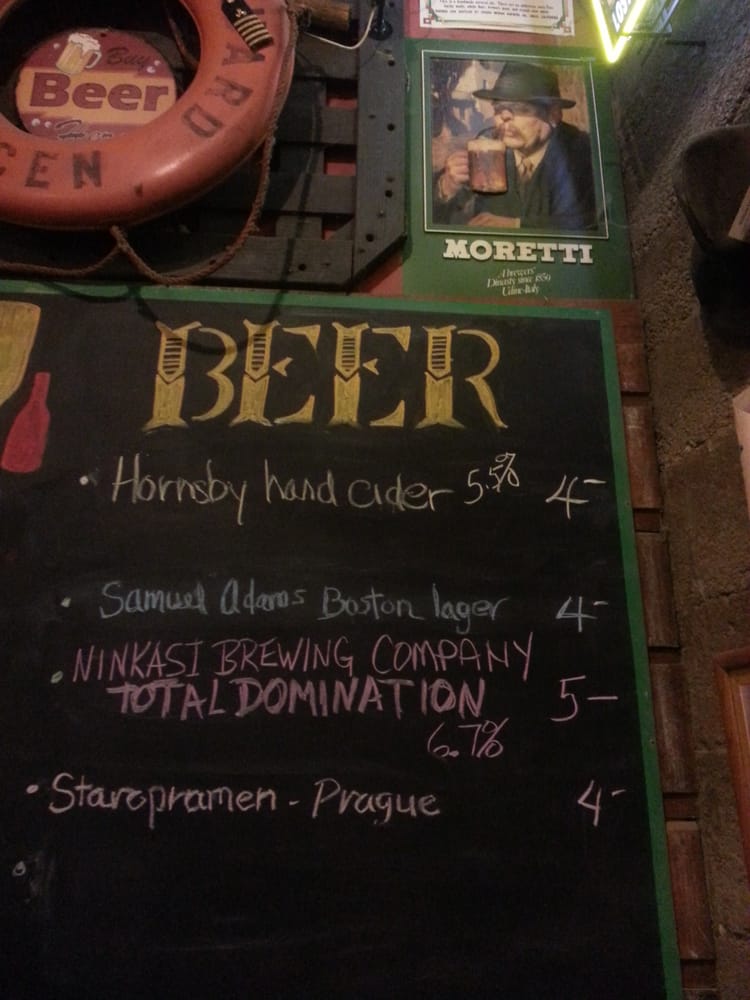 Buy
Beer
ARD
CEN
MORETTI
A brewers'
Dynasty since 1859
Udine-Italy
BEER
• Hornsby hard cider 5.5% 4-
• Samuel Adams Boston lager 4-
• NINKASI BREWING COMPANY
TOTAL DOMINATION 5-
6.7%
• Staropramen - Prague 4-